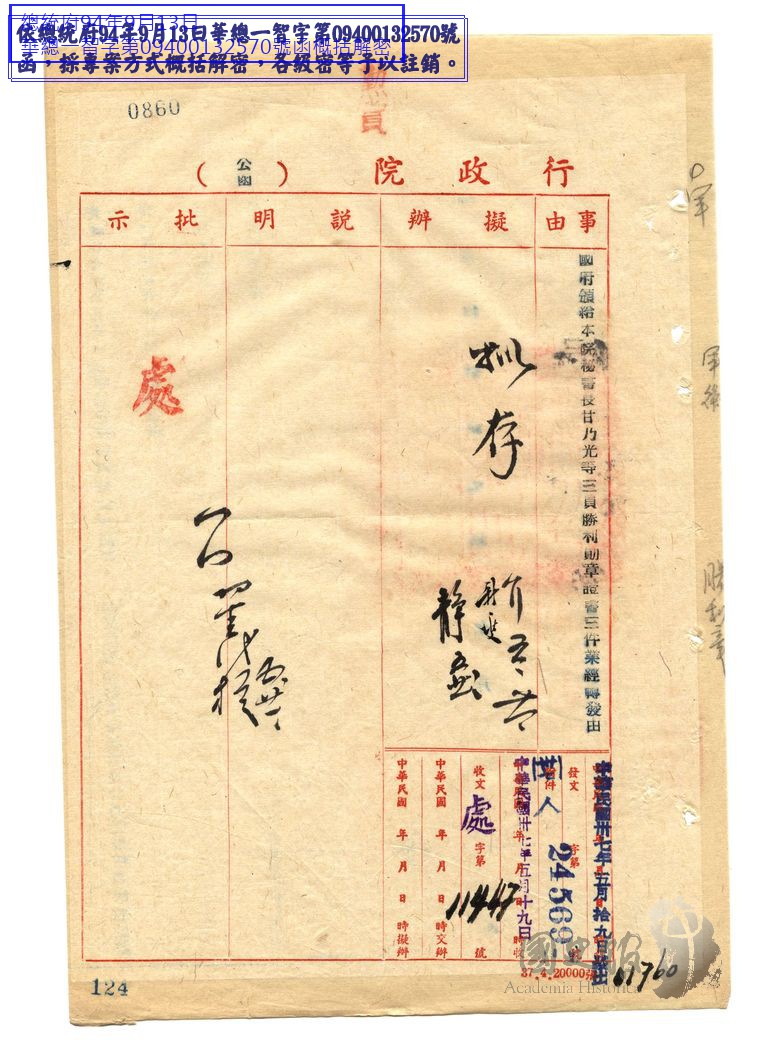 總統府94年9月13日
華總一智字第09400132570號函概括解密
依總統府94年9月13日華總一智字第09400132570號
函，採專案方式概括解密，各級密等予以註銷。
0860
行政院（公函）
事由
擬辦
說明
批示
國府頒給本院秘書長甘乃光等三員勝利勛章證書三件業經轉發由
批存
處
中華民國卅七年五月拾九日發出
發文 字第 24569 號
附件
廿人
中華民國卅七年五月十九日
收文 處 字第 11447 號
中華民國 年 月 日 時交辦
中華民國 年 月 日 時擬辦
37.4.20000張
61760
國史館
Academia Historica
124
勝利章